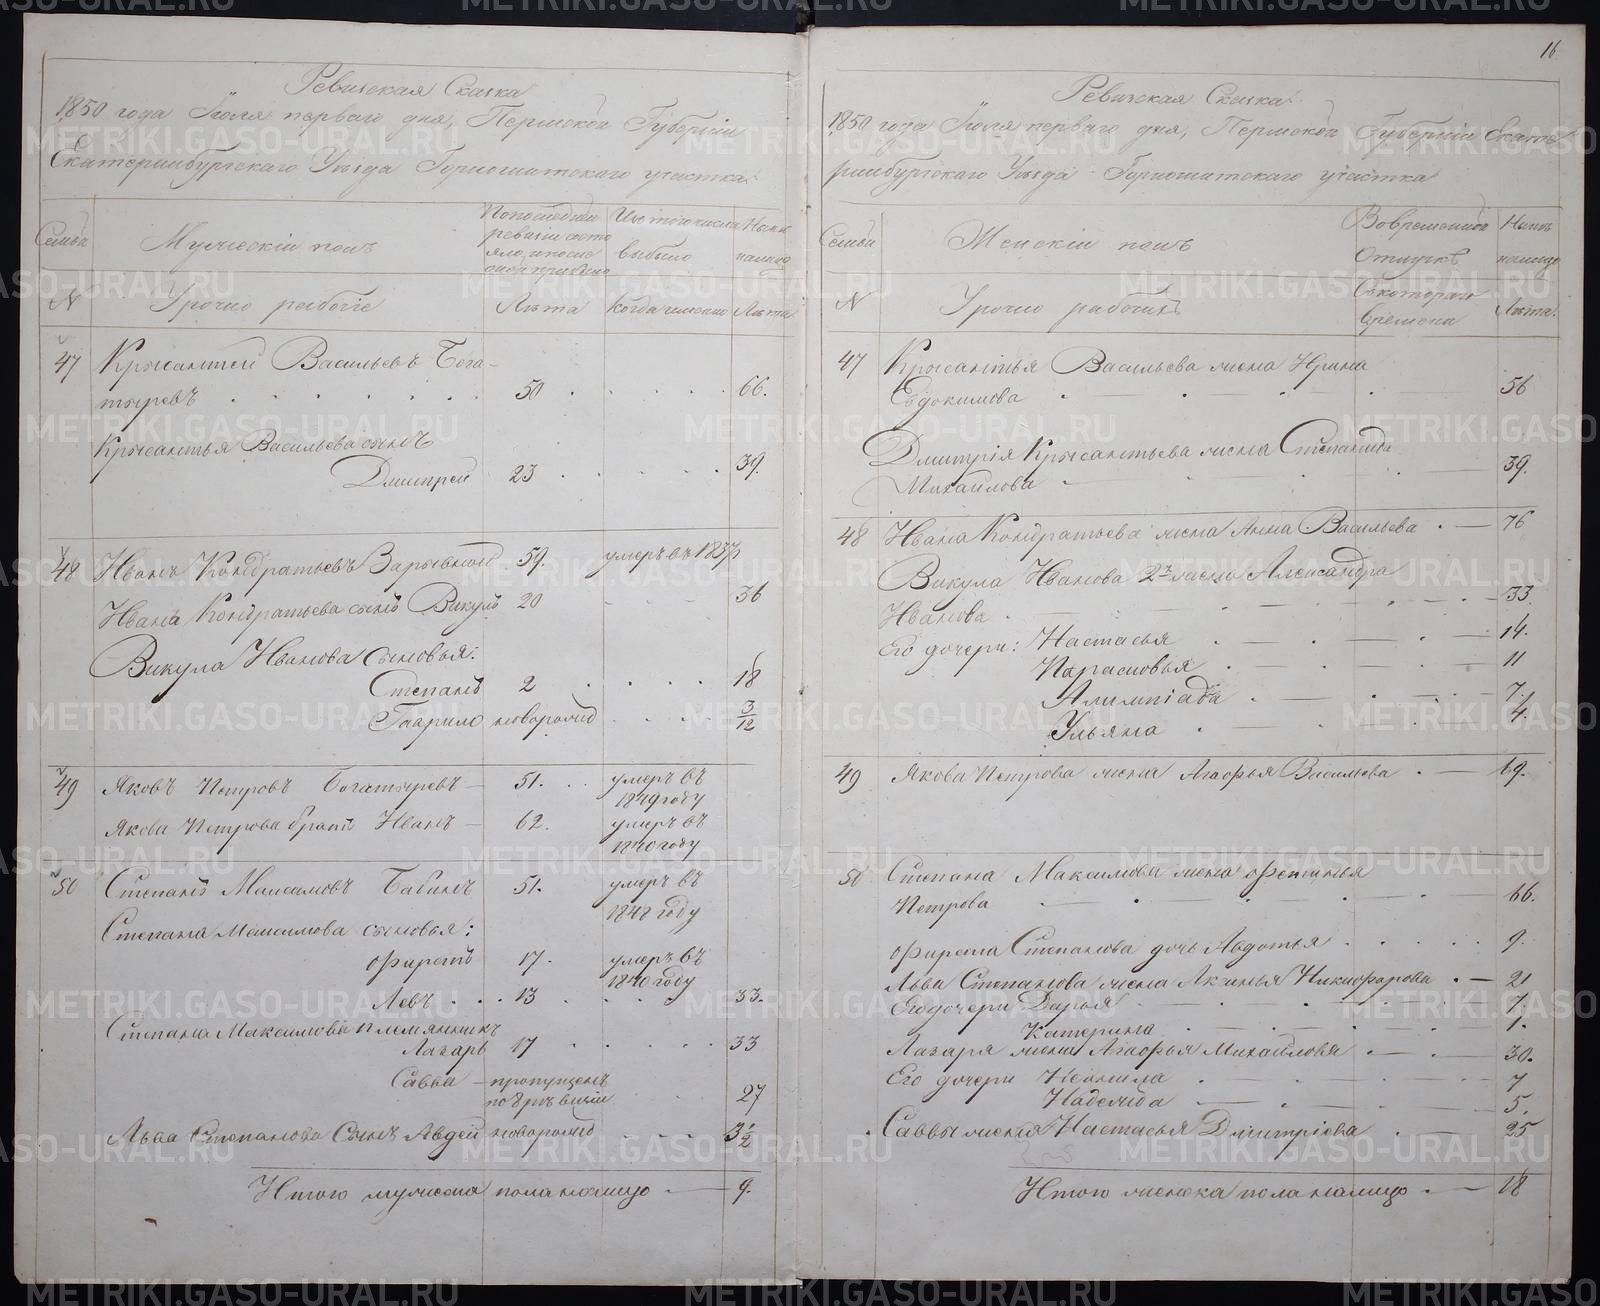 16
Ревизская Сказка
1850 года Іюля перваго дня, Пермской Губерніи
Екатеринбургскаго Уѣзда Горнощитскаго участка.
Семьи
Мужескій полъ
По последней
ревизіи состо
яло, и после
оной прибыло
Изъ того числа
выбыло
Ныне
налицо
№
Урочно рабочіе
Лѣта
Когда именно
Лѣта
47 Крысантей Васильевъ Бога-
тыревъ 50 66.
Крысантья Васильева сынъ
Дмитрей 23 39.
48 Иванъ Кондратьевъ Зарывной 59. умеръ въ 1837
Ивана Кондратьева сынъ Викулъ 20 36
Викула Иванова сыновья:
Степанъ 2 18
Гаврило новорожд 3/12
49 Яковъ Петровъ Богатыревъ 51. умеръ въ
1849 году
Якова Петрова братъ Иванъ 62. умеръ въ
1840 году
50 Степанъ Максимовъ Бабинъ 51. умеръ въ
1848 году
Степана Максимова сыновья:
Фирсъ 17. умеръ въ
1840 году
Левъ 13 33.
Степана Максимова племянники
Лазарь 17 33
Савва пропущенъ
по 8 ревизіи 27
Льва Степанова Сынъ Авдей новорожд 3 1/2
Итого мужеска пола налицо 9.
Ревизская Сказка
1850 года Іюля перваго дня, Пермской Губерніи Екате
ринбургскаго Уѣзда Горнощитскаго участка
Семьи
Женскій полъ
Во временной
Отлучкѣ
Нынѣ
налицо
№
Урочно рабочихъ
Съ котораго
времени
Лѣта.
47 Крысантья Васильева жена Ирина
Евдокимова 56
Дмитрія Крысантьева жена Степанида
Михайлова 39.
48 Ивана Кондратьева жена Анна Васильева 76
Викула Иванова 2я жена Александра
Иванова 33
Его дочери: Настасья 14.
Парасковья 11
Алимпіада 7.
Ульяна 4.
49 Якова Петрова жена Агафья Васильева 69.
50 Степана Максимова жена Фетинья
Петрова 66.
Фирса Степанова дочь Авдотья 9.
Льва Степанова жена Аксинья Никифорова 21
Его дочери Дарья 7.
Катерина 1.
Лазаря жена Агафья Михайлова 30.
Его дочери Неонила 7
Надежда 5.
Саввы жена Настасья Дмитріева 25
Итого женска пола налицо 18
METRIKI.GASO-URAL.RU